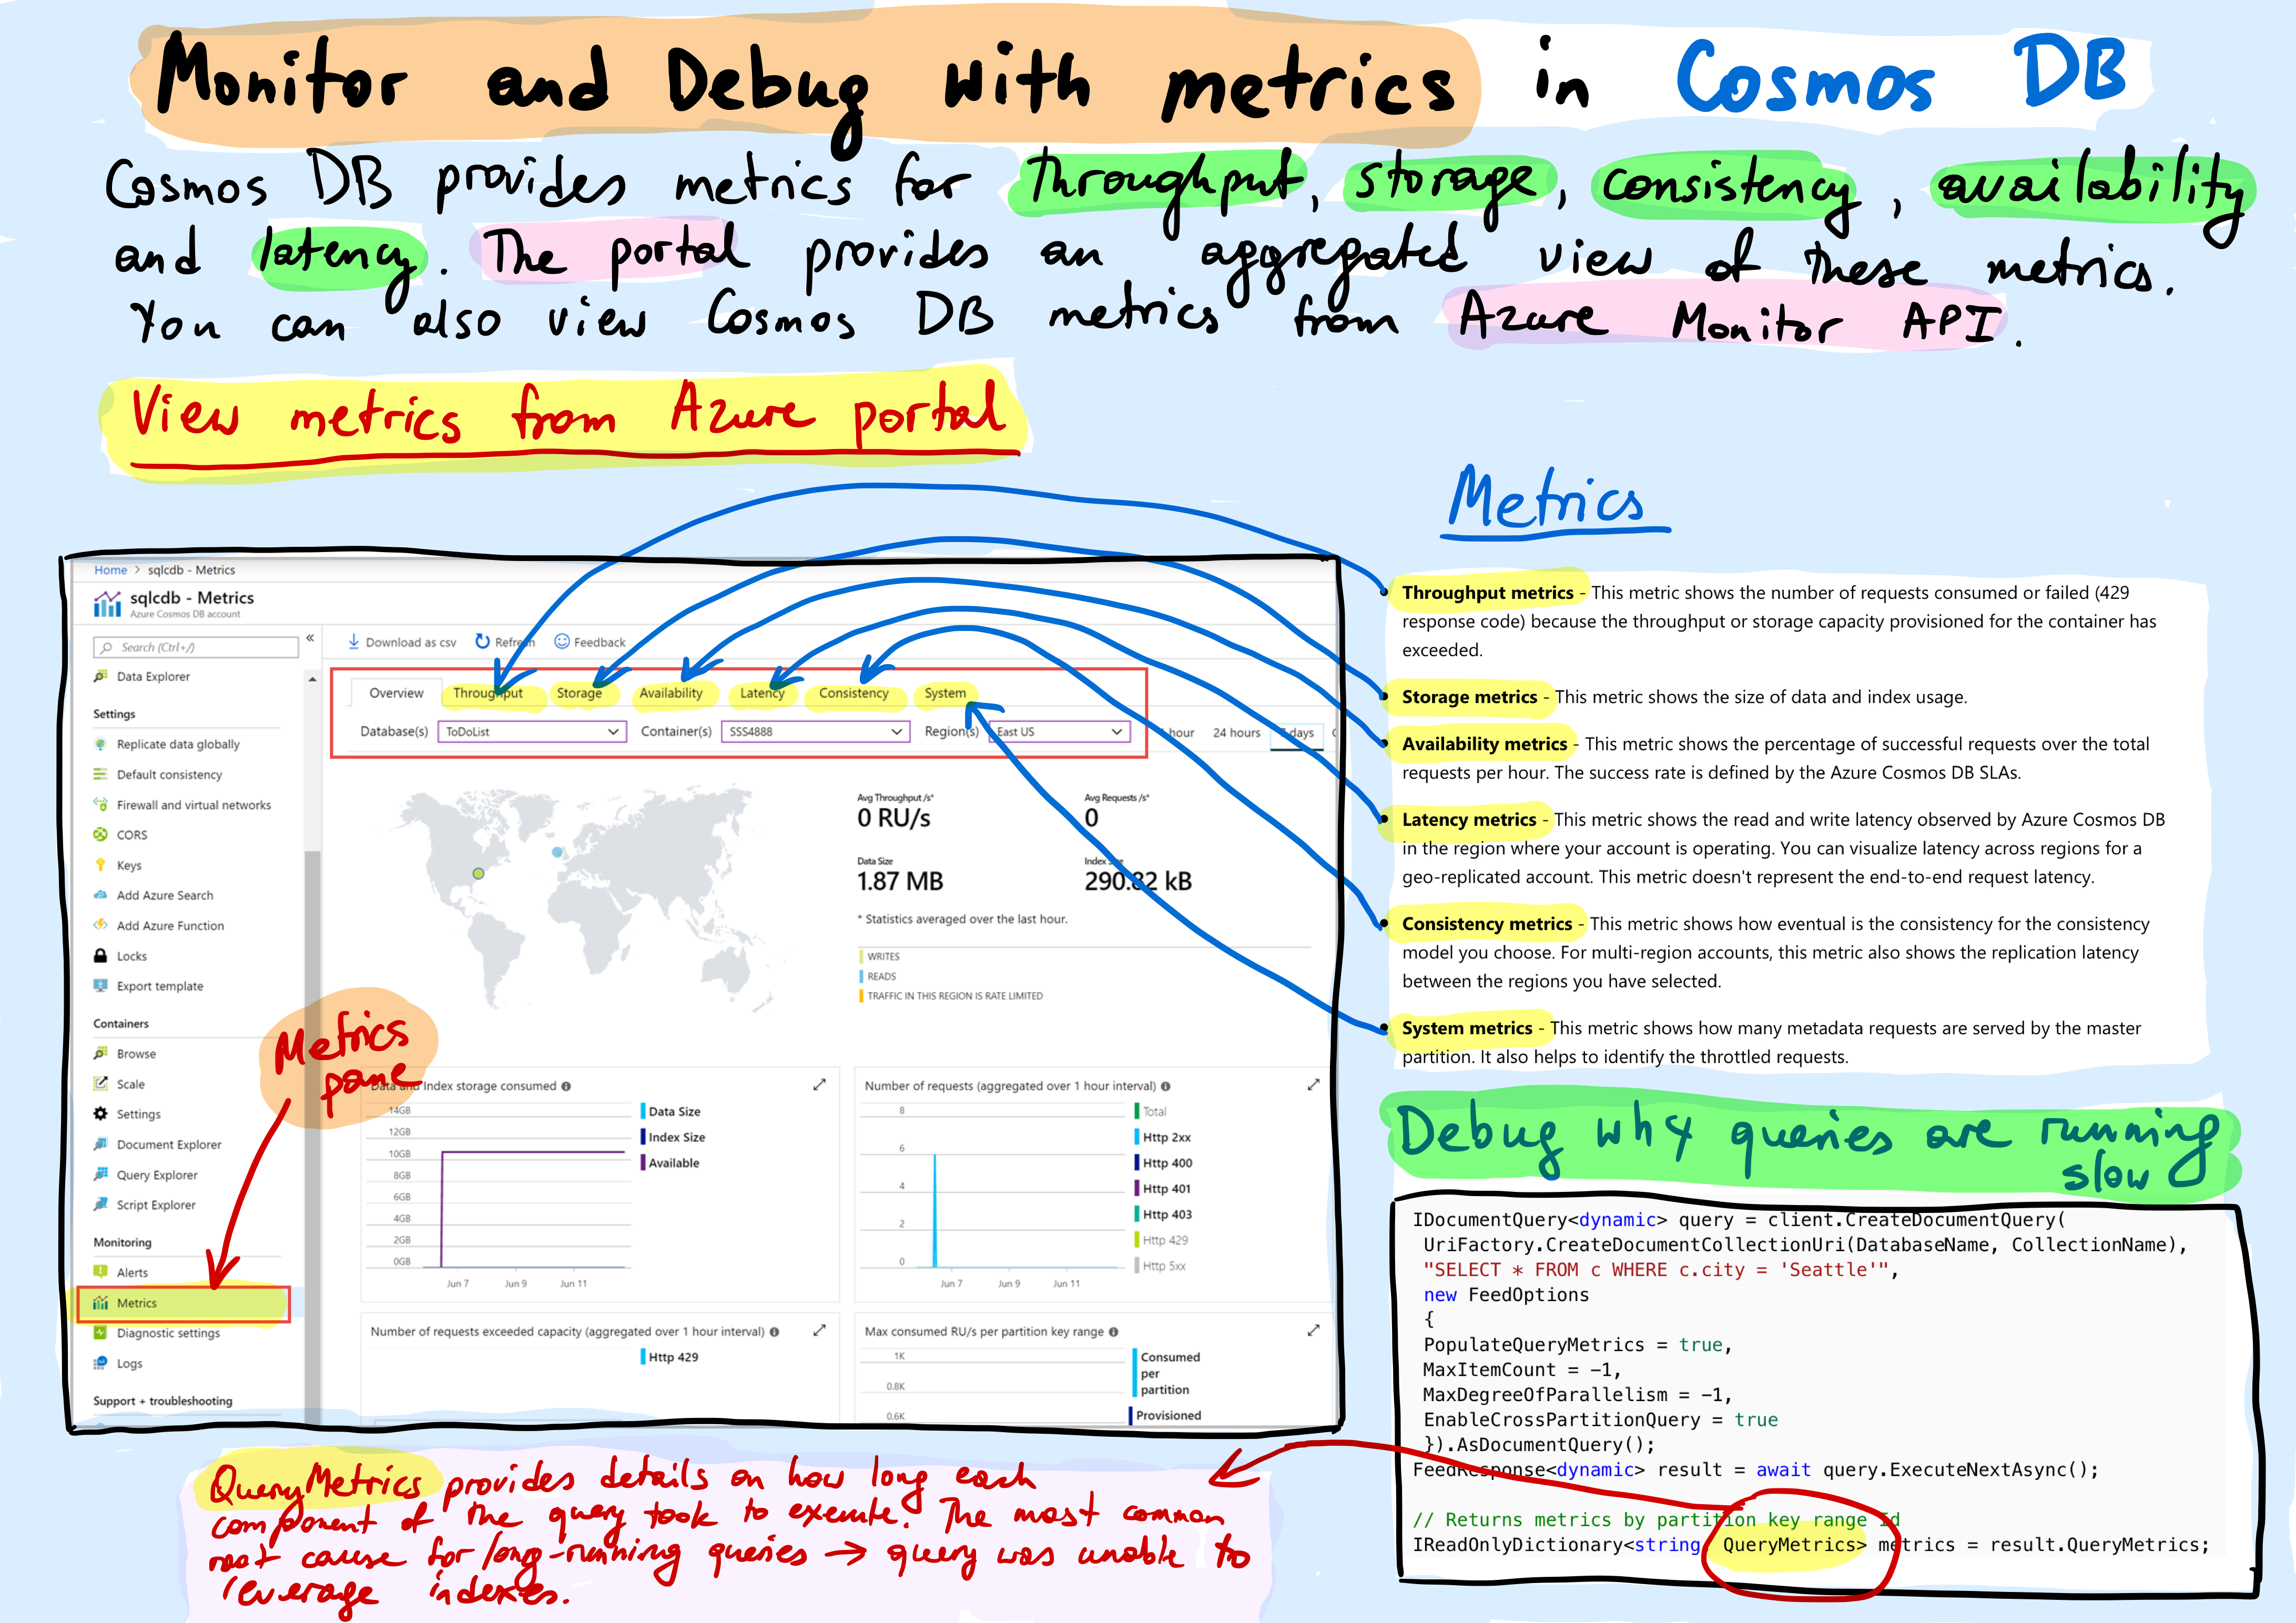 Monitor and Debug with metrics in Cosmos DB
Cosmos DB provides metrics for throughput, storage, consistency, availability
and latency. The portal provides an aggregated view of these metrics.
You can also view Cosmos DB metrics from Azure Monitor API.
View metrics from Azure portal
Home > sqlcdb - Metrics
sqlcdb - Metrics
Azure Cosmos DB account
Search (Ctrl+/)
«
Data Explorer
Settings
Replicate data globally
Default consistency
Firewall and virtual networks
CORS
Keys
Add Azure Search
Add Azure Function
Locks
Export template
Containers
Browse
Scale
Settings
Document Explorer
Query Explorer
Script Explorer
Monitoring
Alerts
Metrics
Diagnostic settings
Logs
Support + troubleshooting
Metrics
pane
Download as csv Refresh Feedback
Overview Throughput Storage Availability Latency Consistency System
Database(s) ToDoList Container(s) SSS4888 Region(s) East US hour 24 hours 7 days
Avg Throughput /s* Avg Requests /s*
0 RU/s 0
Data Size Index Size
1.87 MB 290.82 kB
* Statistics averaged over the last hour.
WRITES
READS
TRAFFIC IN THIS REGION IS RATE LIMITED
Data and Index storage consumed
14GB
12GB
10GB
8GB
6GB
4GB
2GB
0GB
Jun 7 Jun 9 Jun 11
Data Size
Index Size
Available
Number of requests (aggregated over 1 hour interval)
8
6
4
2
0
Jun 7 Jun 9 Jun 11
Total
Http 2xx
Http 400
Http 401
Http 403
Http 429
Http 5xx
Number of requests exceeded capacity (aggregated over 1 hour interval)
Http 429
Max consumed RU/s per partition key range
1K
0.8K
0.6K
Consumed
per
partition
Provisioned
Metrics
• Throughput metrics - This metric shows the number of requests consumed or failed (429
response code) because the throughput or storage capacity provisioned for the container has
exceeded.
• Storage metrics - This metric shows the size of data and index usage.
• Availability metrics - This metric shows the percentage of successful requests over the total
requests per hour. The success rate is defined by the Azure Cosmos DB SLAs.
• Latency metrics - This metric shows the read and write latency observed by Azure Cosmos DB
in the region where your account is operating. You can visualize latency across regions for a
geo-replicated account. This metric doesn't represent the end-to-end request latency.
• Consistency metrics - This metric shows how eventual is the consistency for the consistency
model you choose. For multi-region accounts, this metric also shows the replication latency
between the regions you have selected.
• System metrics - This metric shows how many metadata requests are served by the master
partition. It also helps to identify the throttled requests.
Debug why queries are running
slow
IDocumentQuery<dynamic> query = client.CreateDocumentQuery(
UriFactory.CreateDocumentCollectionUri(DatabaseName, CollectionName),
"SELECT * FROM c WHERE c.city = 'Seattle'",
new FeedOptions
{
PopulateQueryMetrics = true,
MaxItemCount = -1,
MaxDegreeOfParallelism = -1,
EnableCrossPartitionQuery = true
}).AsDocumentQuery();
FeedResponse<dynamic> result = await query.ExecuteNextAsync();
// Returns metrics by partition key range Id
IReadOnlyDictionary<string, QueryMetrics> metrics = result.QueryMetrics;
QueryMetrics provides details on how long each
component of the query took to execute. The most common
root cause for long-running queries → query was unable to
leverage indexes.